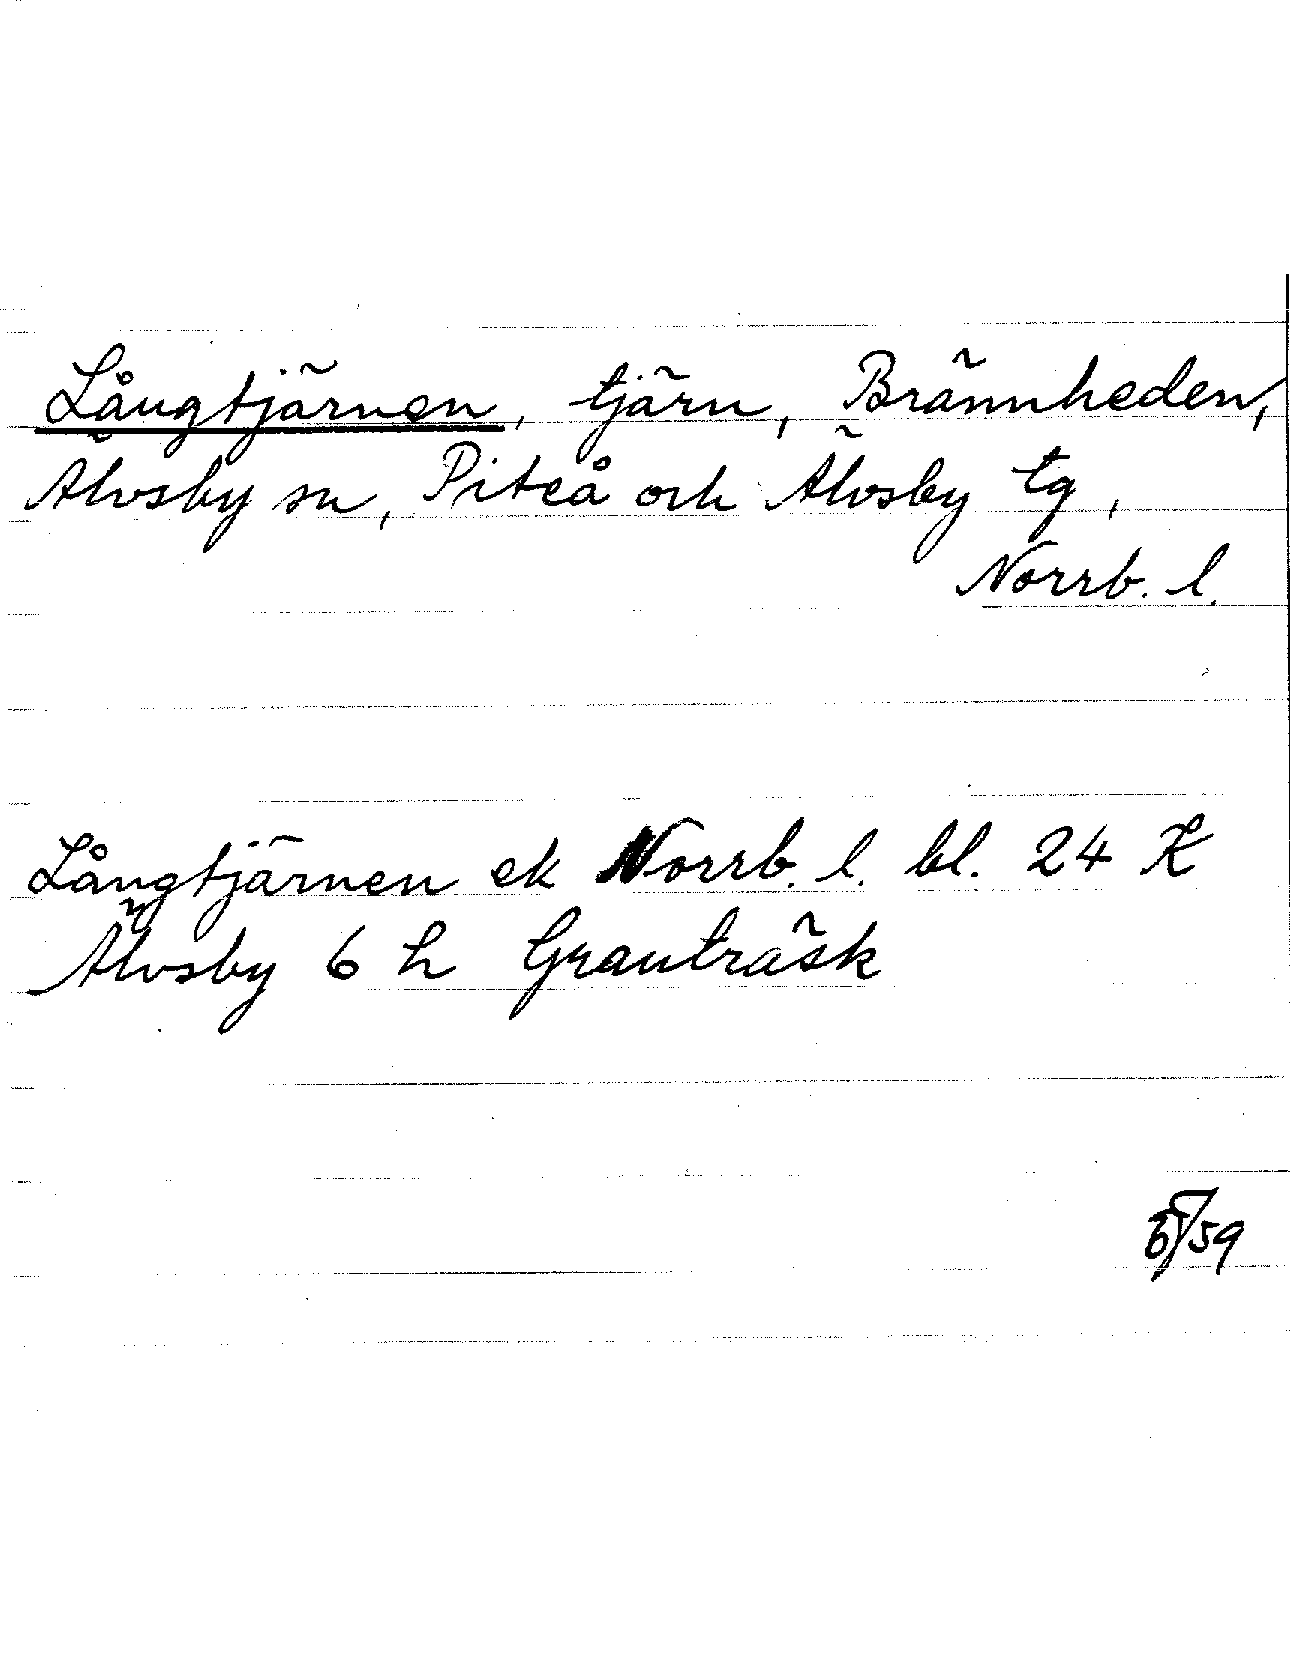 Långtjärnen, tjärn, Brännheden,
Älvsby sn, Piteå och Älvsby tg,
Norrb. l.
Långtjärnen ek Norrb. l. bl. 24 K
Älvsby 6 h Granträsk